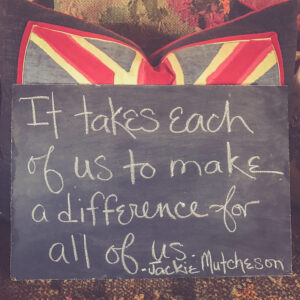 It takes each
of us to make
a difference for
all of us.
-Jackie Mutcheson